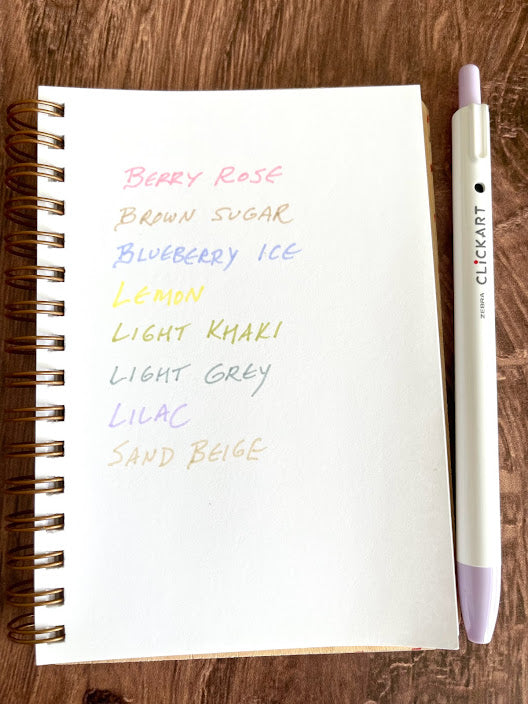 BERRY ROSE
BROWN SUGAR
BLUEBERRY ICE
LEMON
LIGHT KHAKI
LIGHT GREY
LILAC
SAND BEIGE
ZEBRA CLiCKART